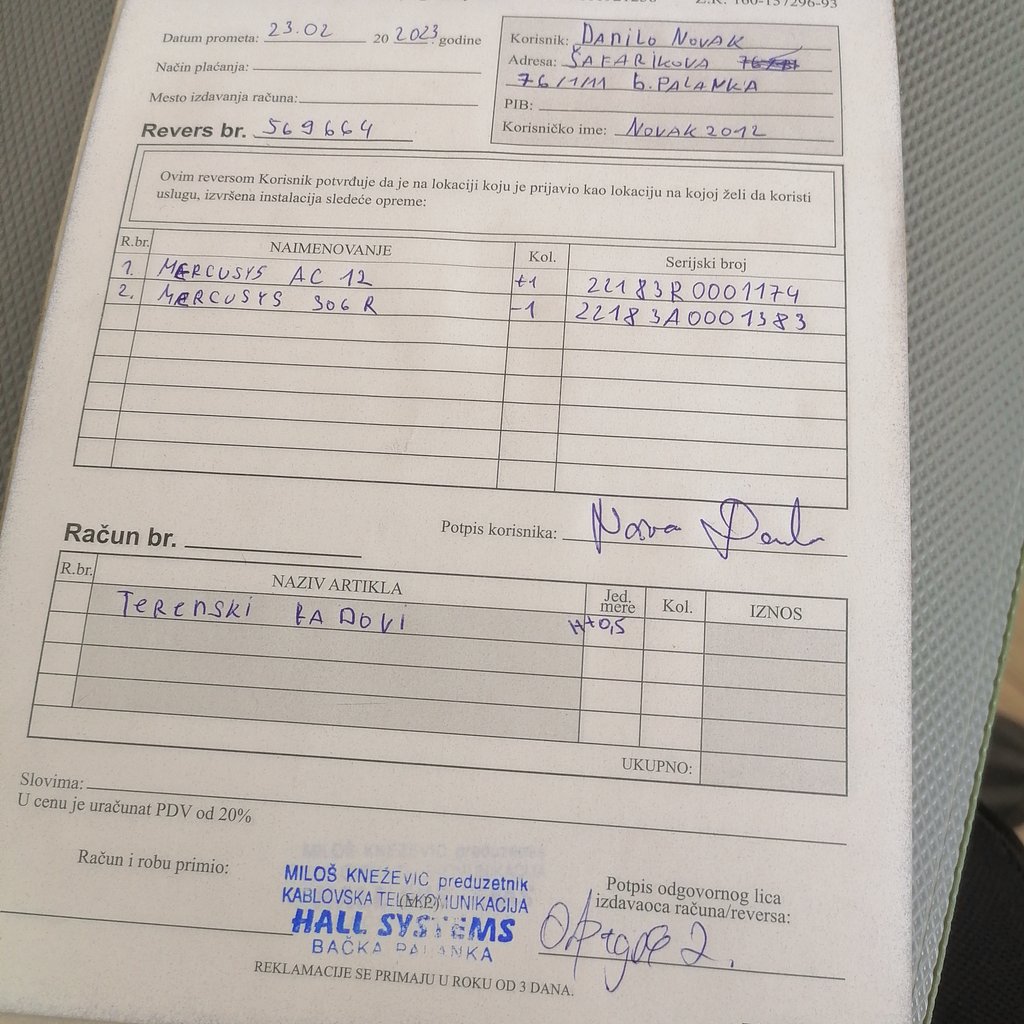 Z.R. 160-137296-93
Datum prometa: 23.02 2023. godine
Način plaćanja:
Mesto izdavanja računa:
Revers br. 569664
Korisnik: DANILO NOVAK
Adresa: ŠAFARIKOVA
76/1/11 B.PALANKA
PIB:
Korisničko ime: NOVAK2012
Ovim reversom Korisnik potvrđuje da je na lokaciji koju je prijavio kao lokaciju na kojoj želi da koristi
uslugu, izvršena instalacija sledeće opreme:
R.br. NAIMENOVANJE Kol. Serijski broj
1. MERCUSYS AC 12 +1 22183R0001174
2. MERCUSYS 306 R -1 22183A0001383
Potpis korisnika:
Račun br.
R.br. NAZIV ARTIKLA Jed. mere Kol. IZNOS
TERENSKI RADOVI H+0,5
UKUPNO:
Slovima:
U cenu je uračunat PDV od 20%
Račun i robu primio:
MILOŠ KNEŽEVIĆ preduzetnik
KABLOVSKA TELEKOMUNIKACIJA
(M.P.)
HALL SYSTEMS
BAČKA PALANKA
Potpis odgovornog lica
izdavaoca računa/reversa:
REKLAMACIJE SE PRIMAJU U ROKU OD 3 DANA.